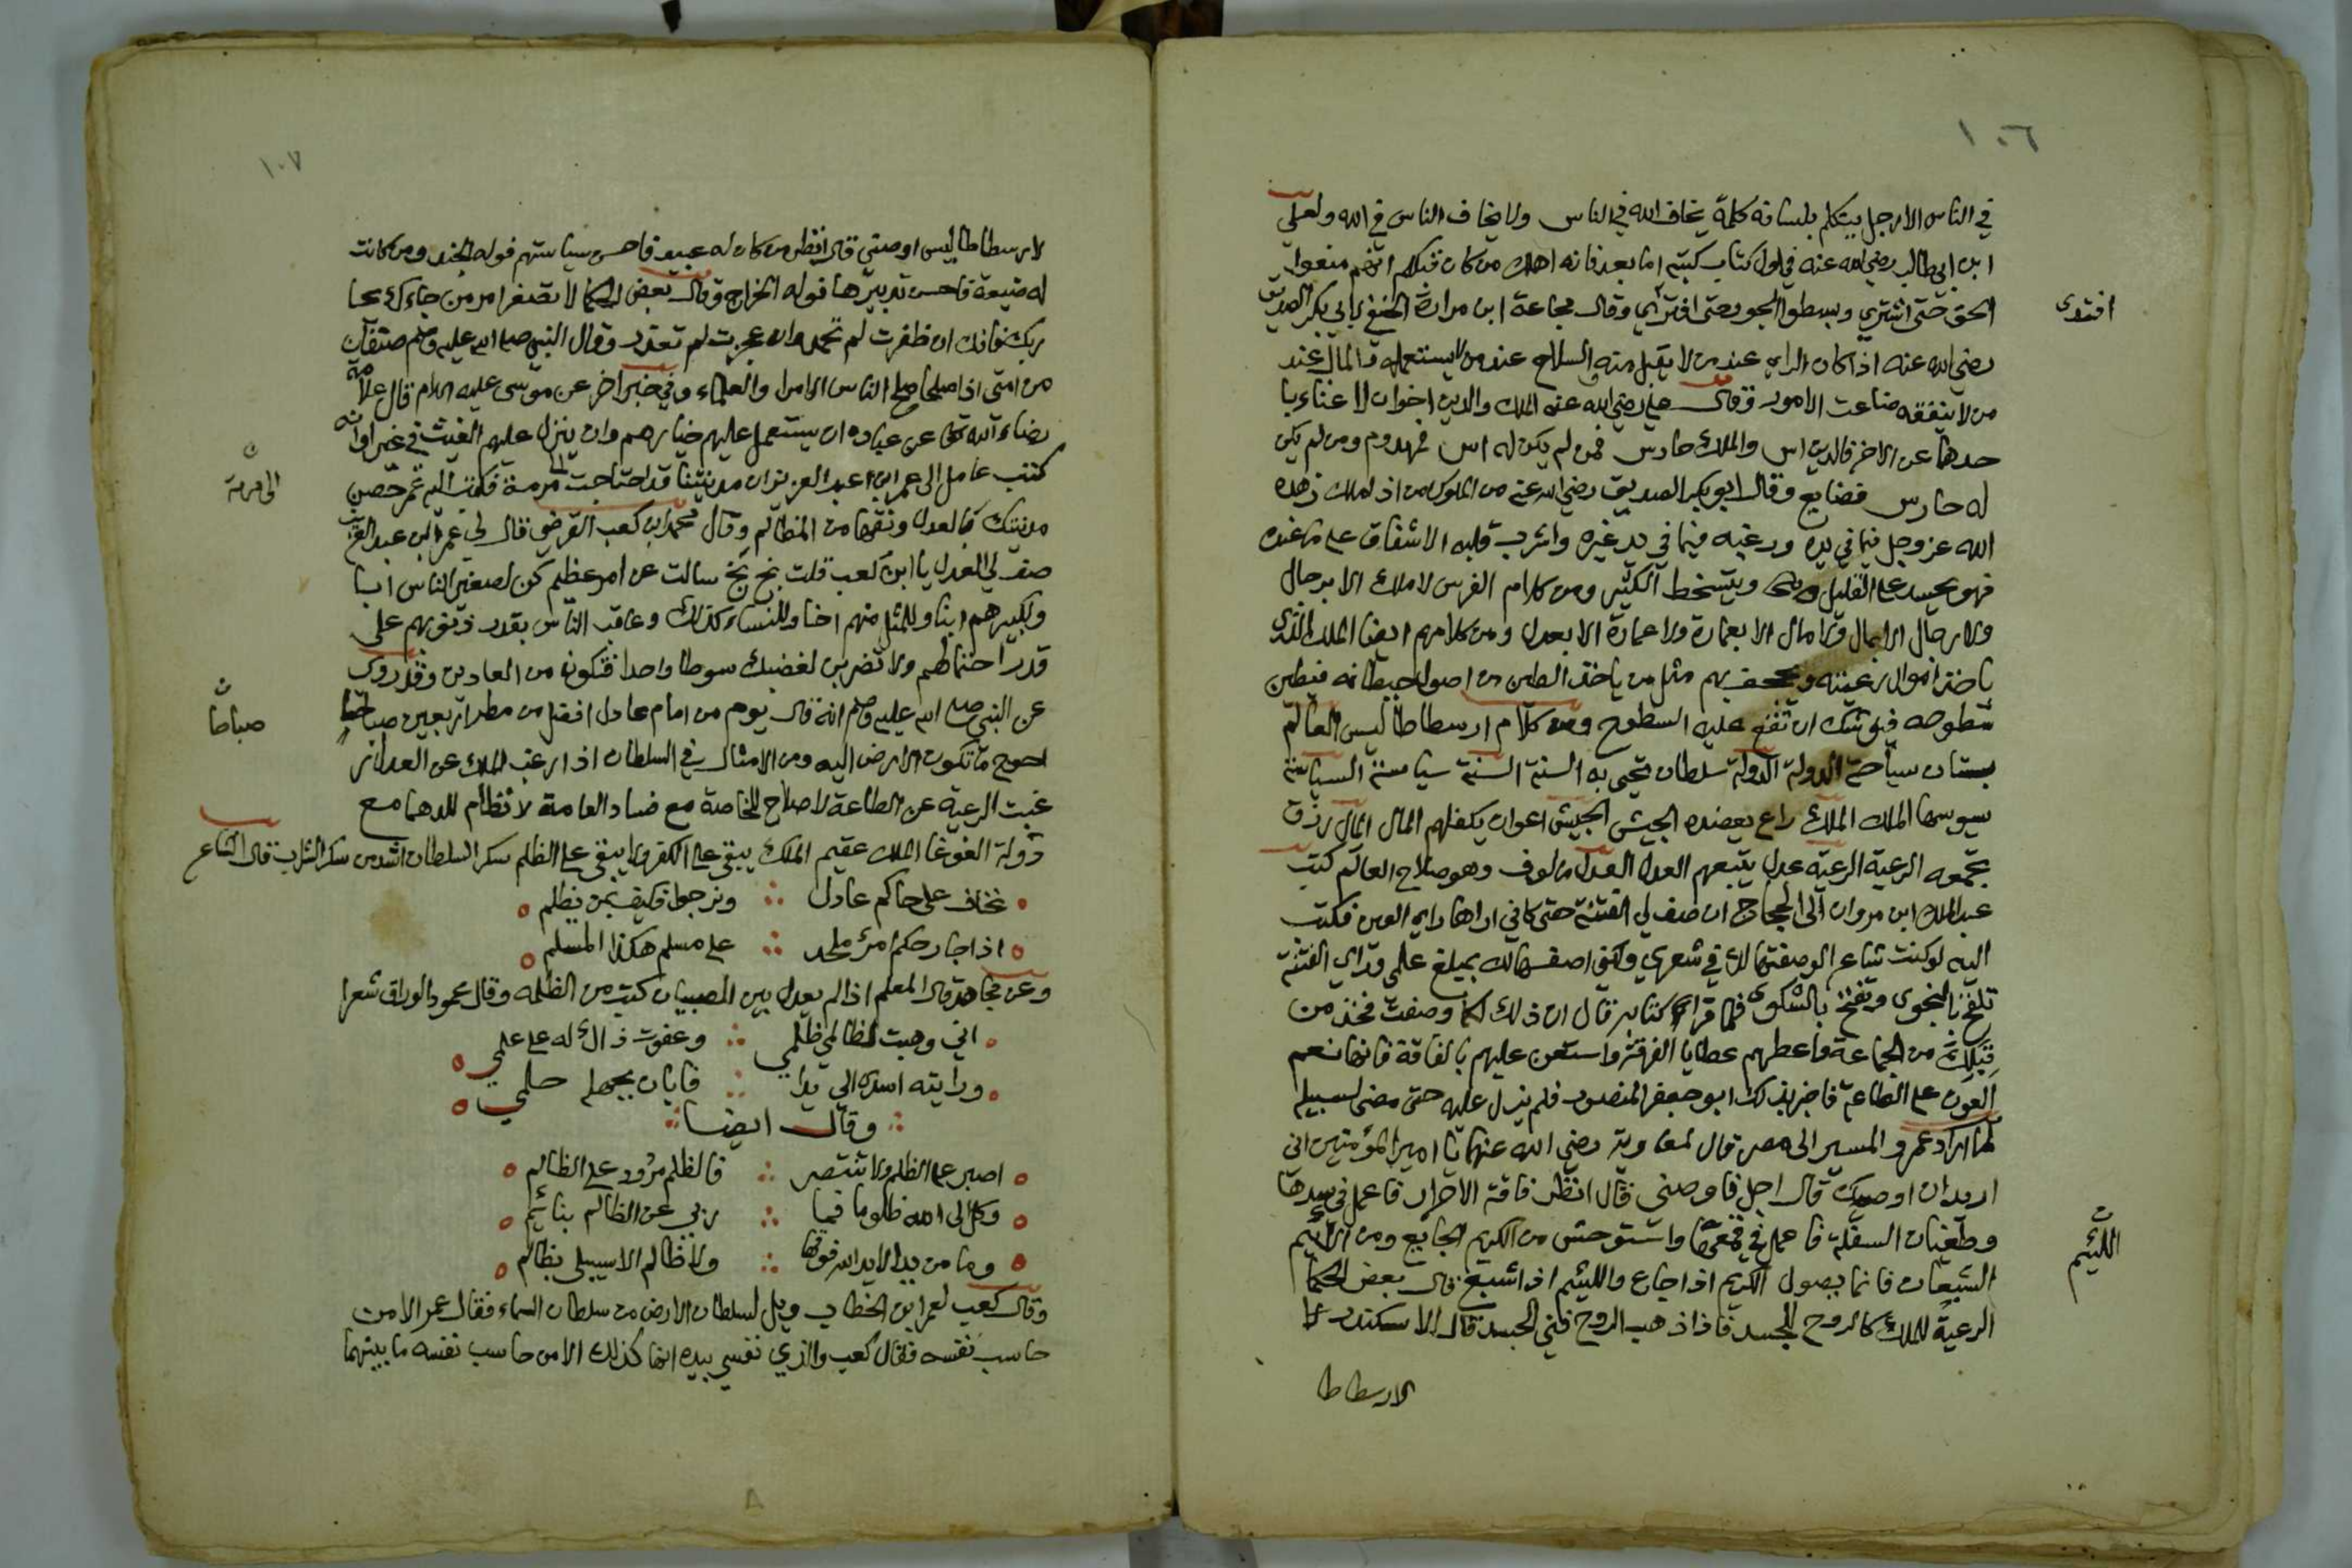 ١٠٦
في الناس الا رجل يتكلم بلسانه كلمة يخاف الله في الناس ولا يخاف الناس في الله ولعلي
ابن ابي طالب رضي الله عنه في اول كتاب كتبه اما بعد فانه اهلك من كان قبلكم انهم منعوا
الحق حتى اشتري وبسطوا الجور حتى افتري وقال مجاعة ابن مرارة الحنفي لابي بكر الصديق
افتدى
رضي الله عنه اذا كان الراي عند من لا يقبل منه والسلاح عند من لا يستعمله والمال عند
من لا ينفقه ضاعت الامور وقال علي رضي الله عنه الملك والدين اخوان لا غناء با
حدهما عن الاخر فالدين اس والملك حارس فمن لم يكن له اس فمهدوم ومن لم يكن
له حارس فضايع وقال ابو بكر الصديق رضي الله عنه من الملوك من اذا ملك زهده
الله عز وجل فيما في يده ورغبه فيما في يد غيره واشرب قلبه الاشفاق على ما عنده
فهو يحسد على القليل ويتسخط الكثير ومن كلام الفرس لا ملك الا برجال
ولا رجال الا بمال ولا مال الا بعمارة ولا عمارة الا بعدل ومن كلامهم ايضا الملك الذي
ياخذ اموال رعيته ويجحف بهم مثل من ياخذ الطين من اصول حيطانه فيطين
سطوحه فيوشك ان تقع عليه السطوح ومن كلام ارسطاطاليس العالم
بستان سياجه الدولة الدولة سلطان تحيى به السنة السنة سياسة السياسة
يسوسها الملك الملك راع يعضده الجيش الجيش اعوان يكفلهم المال المال رزق
تجمعه الرعية الرعية عدل يتبعهم العدل العدل مالوف وهو صلاح العالم كتب
عبد الملك ابن مروان الى الحجاج ان صف لي الفتنة حتى كاني اراها راي العين فكتب
اليه لو كنت شاعرا لوصفتها لك في شعري ولكني اصفها لك بمبلغ علمي ورايي الفتنة
تلقح بالنجوى وتنتج بالشكوى فلما قرا كتابه قال ان ذلك لكما وصفت فخذ من
قبلك من الجماعة واعطهم عطايا الفرقة واستعن عليهم بالفاقة فانها نعم
العون على الطاعة فاخبر بذلك ابو جعفر المنصور فلم يزل عليه حتى مضى لسبيله
لما اراد عمرو المسير الى مصر قال لمعاوية رضي الله عنهما يا امير المؤمنين اني
اريد ان اوصيك قال اجل فاوصني قال انظر فاقة الاحرار فاعمل في سدها
وطغيان السفلة فاعمل في قمعها واستوحش من الكريم الجايع ومن اللئيم
اللئيم
الشبعان فانما يصول الكريم اذا جاع واللئيم اذا شبع قال بعض الحكما
الرعية للملك كالروح للجسد فاذا ذهب الروح فني الجسد قال الاسكندر
لارسطاطا
١٠٧
لارسطاطاليس اوصني قال انظر من كان له عبيد فاحسن سياستهم فوله الجند ومن كانت
له ضيعة فاحسن تدبيرها فوله الخراج وقال بعض الحكما لا تصغر امر من جاءك
فانك ان ظفرت لم تحمد وان عجزت لم تعذر وقال النبي صلى الله عليه وسلم صنفان
من امتي اذا صلحا صلح الناس الامرا والعلماء وفي خبر اخر عن موسى عليه السلام قال علامة
رضاء الله تعالى عن عباده ان يستعمل عليهم خيارهم وان ينزل عليهم الغيث في غير اوانه
كتب عامل الى عمر ابن عبد العزيز ان مدينتنا قد احتاجت الى مرمة فكتب اليه عمر حصن
الى مرمة
مدينتك بالعدل ونقها من المظالم وقال محمد ابن كعب القرضي قال لي عمر ابن عبد العزيز
صف لي العدل يا ابن كعب قلت بخ بخ سالت عن امر عظيم كن لصغير الناس ابا
ولكبيرهم ابنا وللمثل منهم اخا وللنساء كذلك وعاقب الناس بقدر ذنوبهم على
قدر احتمالهم ولا تضربن لغضبك سوطا واحدا فتكون من العادين وقد روى
عن النبي صلى الله عليه وسلم انه قال يوم من امام عادل افضل من مطر اربعين صباحا
صباحا
احوج ما تكون الارض اليه ومن الامثال في السلطان اذا رغب الملك عن العدل
رغبت الرعية عن الطاعة لا صلاح للخاصة مع فساد العامة لا نظام للدهما مع
دولة الغوغا الملك عقيم الملك يبقى على الكفر ولا يبقى على الظلم سكر السلطان اشد من سكر الشراب قال الشاعر
نخاف على حاكم عادل ∴ ونرجو فكيف بمن يظلم
اذا جار حكم امرئ ملحد ∴ على مسلم هكذا المسلم
وعن مجاهد قال المعلم اذا لم يعدل بين الصبيان كتب من الظلمه وقال محمود الوراق شعرا
اني وهبت لظالمي ظلمي ∴ وعفوت ذاك له على علمي
ورايته اسدى الي يدا ∴ فابان بجهله حلمي
∴ وقال ايضا ∴
اصبر على الظلم ولا تنتصر ∴ فالظلم مردود على الظالم
وكل الى الله ظلوما فما ∴ ربي عن الظالم بنائم
وما من يد الا يد الله فوقها ∴ ولا ظالم الا سيبلى بظالم
وقال كعب لعمر ابن الخطاب ويل لسلطان الارض من سلطان السماء فقال عمر الا من
حاسب نفسه فقال كعب والذي نفسي بيده انها كذلك الا من حاسب نفسه ما بينهما